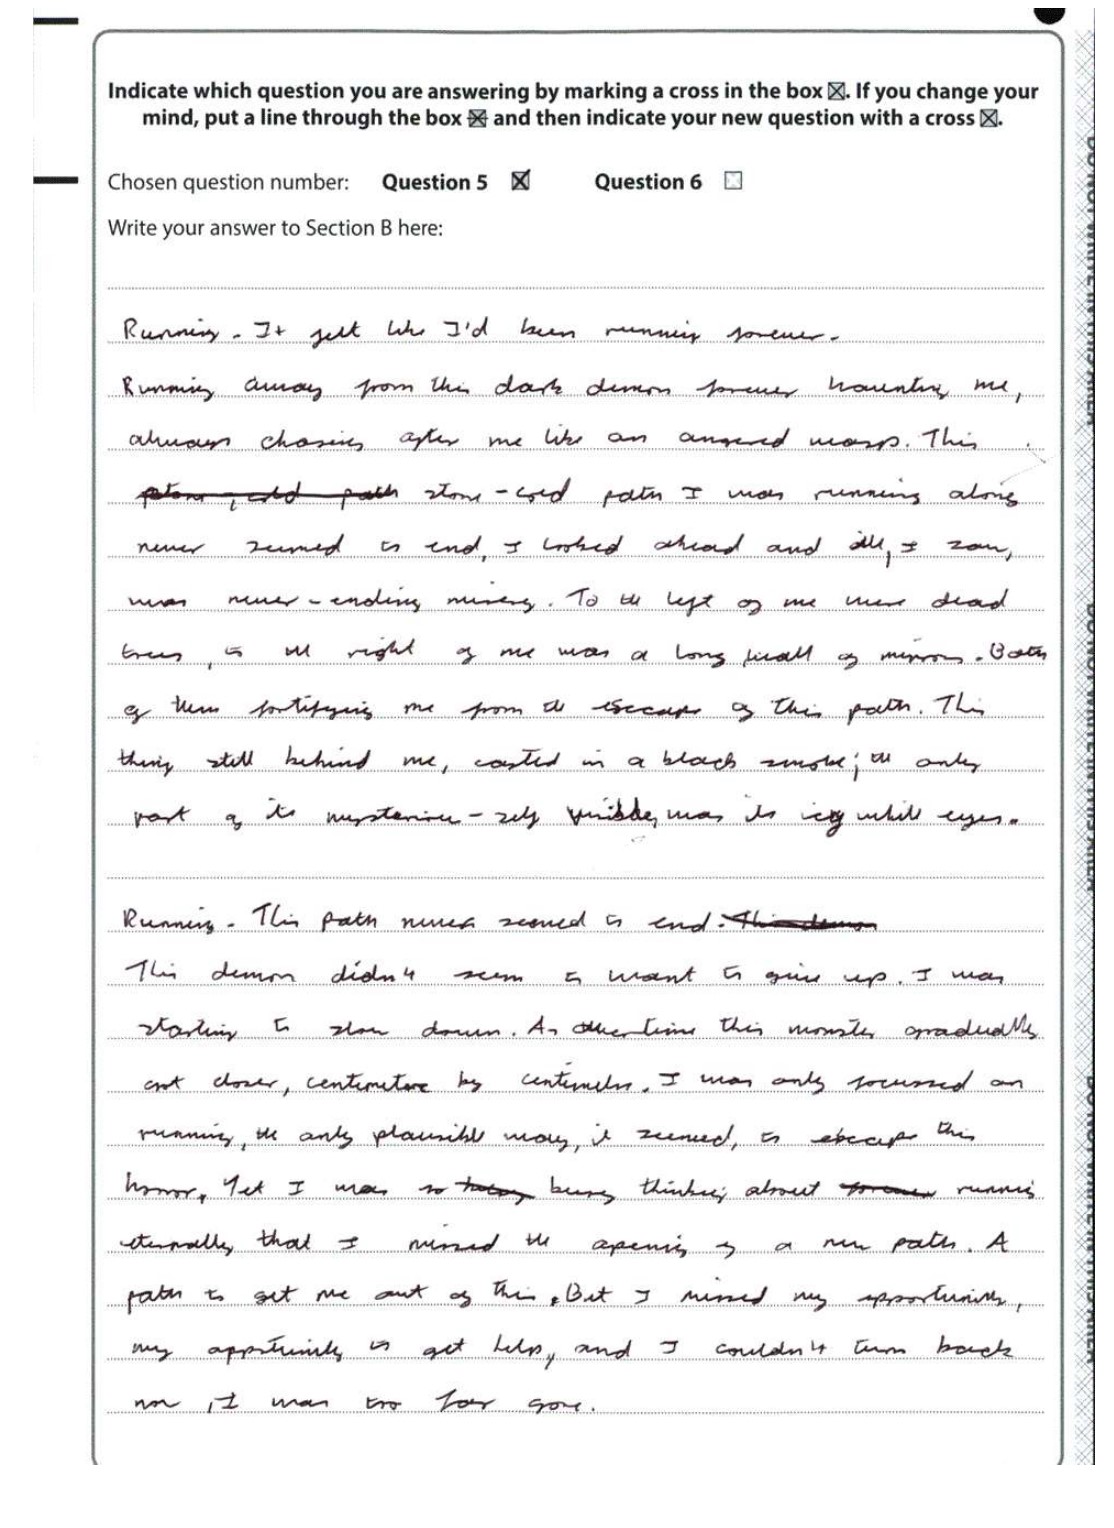 Indicate which question you are answering by marking a cross in the box ☒. If you change your
mind, put a line through the box ☒ and then indicate your new question with a cross ☒.
Chosen question number: Question 5 ☒ Question 6 ☐
Write your answer to Section B here:
Running. It felt like I'd been running forever.
Running away from this dark demon forever haunting me,
always chasing after me like an angered wasp. This
stone-cold path I was running along
never seemed to end, I looked ahead and all, I saw,
was never-ending misery. To the left of me were dead
trees, to the right of me was a long wall of mirrors. Both
of them fortifying me from the escape of this path. This
thing still behind me, casted in a black smoke; the only
part of its mysterious-self visible, was its icy white eyes.
Running. This path never seemed to end.
This demon didn't seem to want to give up. I was
starting to slow down. As this monster gradually
got closer, centimetre by centimetre. I was only focussed on
running, the only plausible way, it seemed, to escape this
horror, Yet I was so busy thinking about running
eternally that I missed the opening of a new path. A
path to get me out of this. But I missed my opportunity,
my opportunity to get help, and I couldn't turn back
now, I was too far gone.